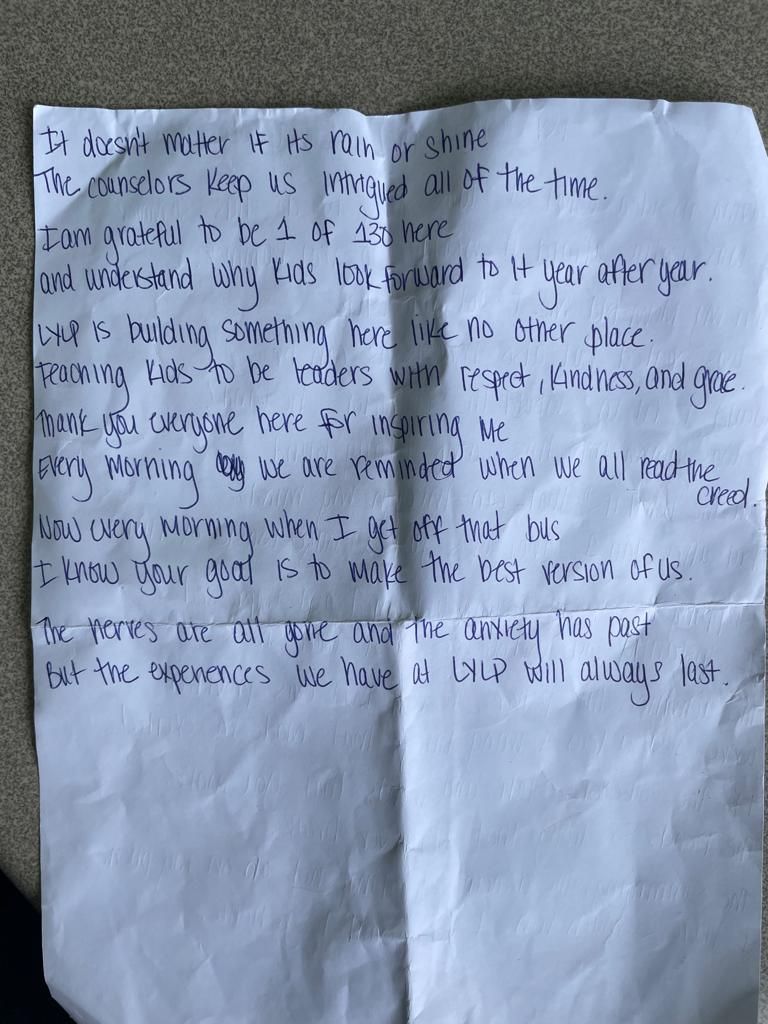 It doesn't matter if its rain or shine
The counselors keep us intrigued all of the time.
I am grateful to be 1 of 130 here
and understand why kids look forward to it year after year.
LYLP is building something here like no other place.
teaching kids to be leaders with respect, kindness, and grace.
Thank you everyone here for inspiring me
Every morning we are reminded when we all read the
creed.
Now every morning when I get off that bus
I know your goal is to make the best version of us.
The nerves are all gone and the anxiety has past
But the experiences we have at LYLP will always last.